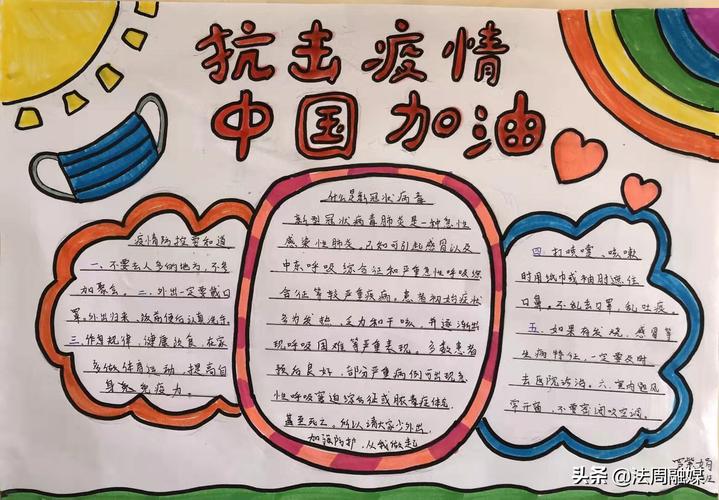 抗击疫情
中国加油
疫情防控要知道
一、不要去人多的地方,不参
加聚会。二、外出一定要戴口
罩。外出归来、饭前便后认真洗手。
三、作息规律,健康饮食,在家
多做体育运动,提高自
身免疫力。
什么是新冠状病毒
新型冠状病毒肺炎是一种急性
感染性肺炎。已知可引起感冒以及
中东呼吸综合征和严重急性呼吸综
合征等较严重疾病。患者初始症状
多为发热、乏力和干咳,并逐渐出
现呼吸困难等严重表现。多数患者
预后良好,部分严重病例可出现急
性呼吸窘迫综合征或脓毒症休克,
甚至死亡。所以请大家少外出
加强防护,从我做起
四、打喷嚏、咳嗽
时用纸巾或袖肘遮住
口鼻。不乱丢口罩,乱吐痰。
五、如果有发烧、感冒等
生病特征,一定要及时
去医院诊治。六、室内通风
常开窗,不要密闭吹空调。
头条 @法周融媒